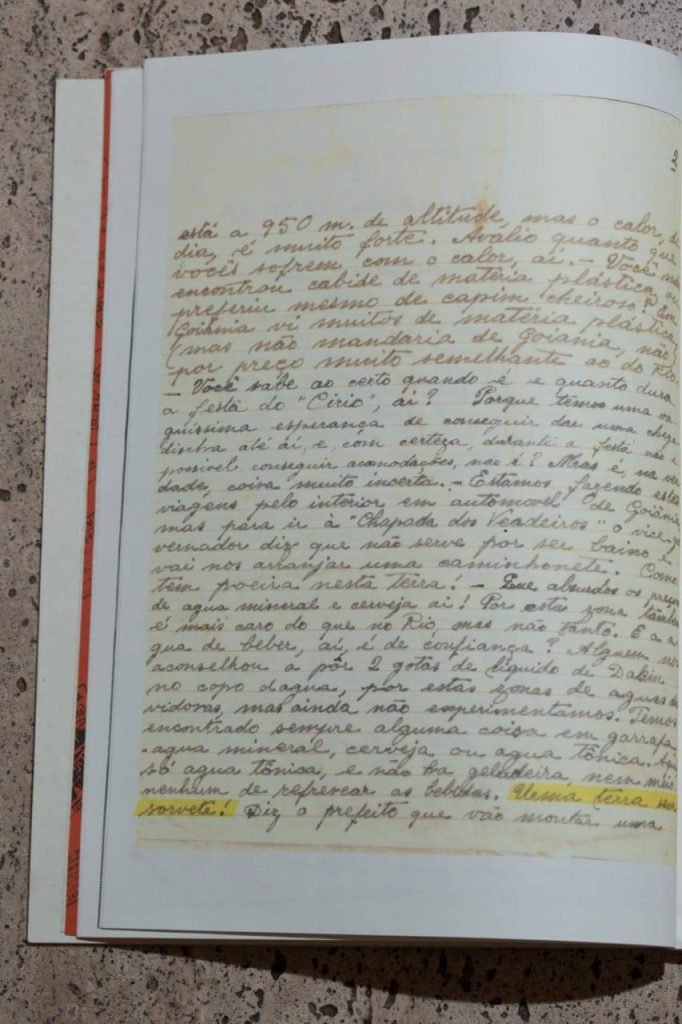 2
está a 950 m. de altitude, mas o calor, de
dia, é muito forte. Aválio quanto que
vocês sofrem com o calor, aí. - Você não
encontrou cabide de matéria plástica, ou
preferiu mesmo de capim cheiroso? Em
Goiânia vi muitos de matéria plástica,
(mas não mandaria de Goiania, não)
por preço muito semelhante ao do Rio.
- Você sabe ao certo quando é e quanto dura
a festa do "Círio", aí? Porque temos uma va
guíssima esperança de conseguir dar uma chega
dinha até aí, e, com certeza, durante a festa não é
possivel conseguir acomodações, não é? Mas é, na ver
dade, coisa muito incerta. - Estamos fazendo estas
viagens pelo interior em automovel de Goiânia
mas para ir à "Chapada dos Veadeiros" o vice-go
vernador diz que não serve por ser baixo e
vai nos arranjar uma caminhonete. Como
tem poeira nesta terra! - Que absurdos os preços
de agua mineral e cerveja aí! Por esta zona também
é mais caro do que no Rio, mas não tanto. E a a
gua de beber, aí, é de confiança? Alguem nos
aconselhou a pôr 2 gotas de líquido de Dakin
no copo dagua, por estas zonas de aguas du
vidosas, mas ainda não experimentamos. Temos
encontrado sempre alguma coisa em garrafa,
- agua mineral, cerveja, ou agua tônica. Aqui
só agua tônica, e não ha geladeira nem meio
nenhum de refrescar as bebidas. É uma terra sem
sorvete! Diz o prefeito que vão montar uma